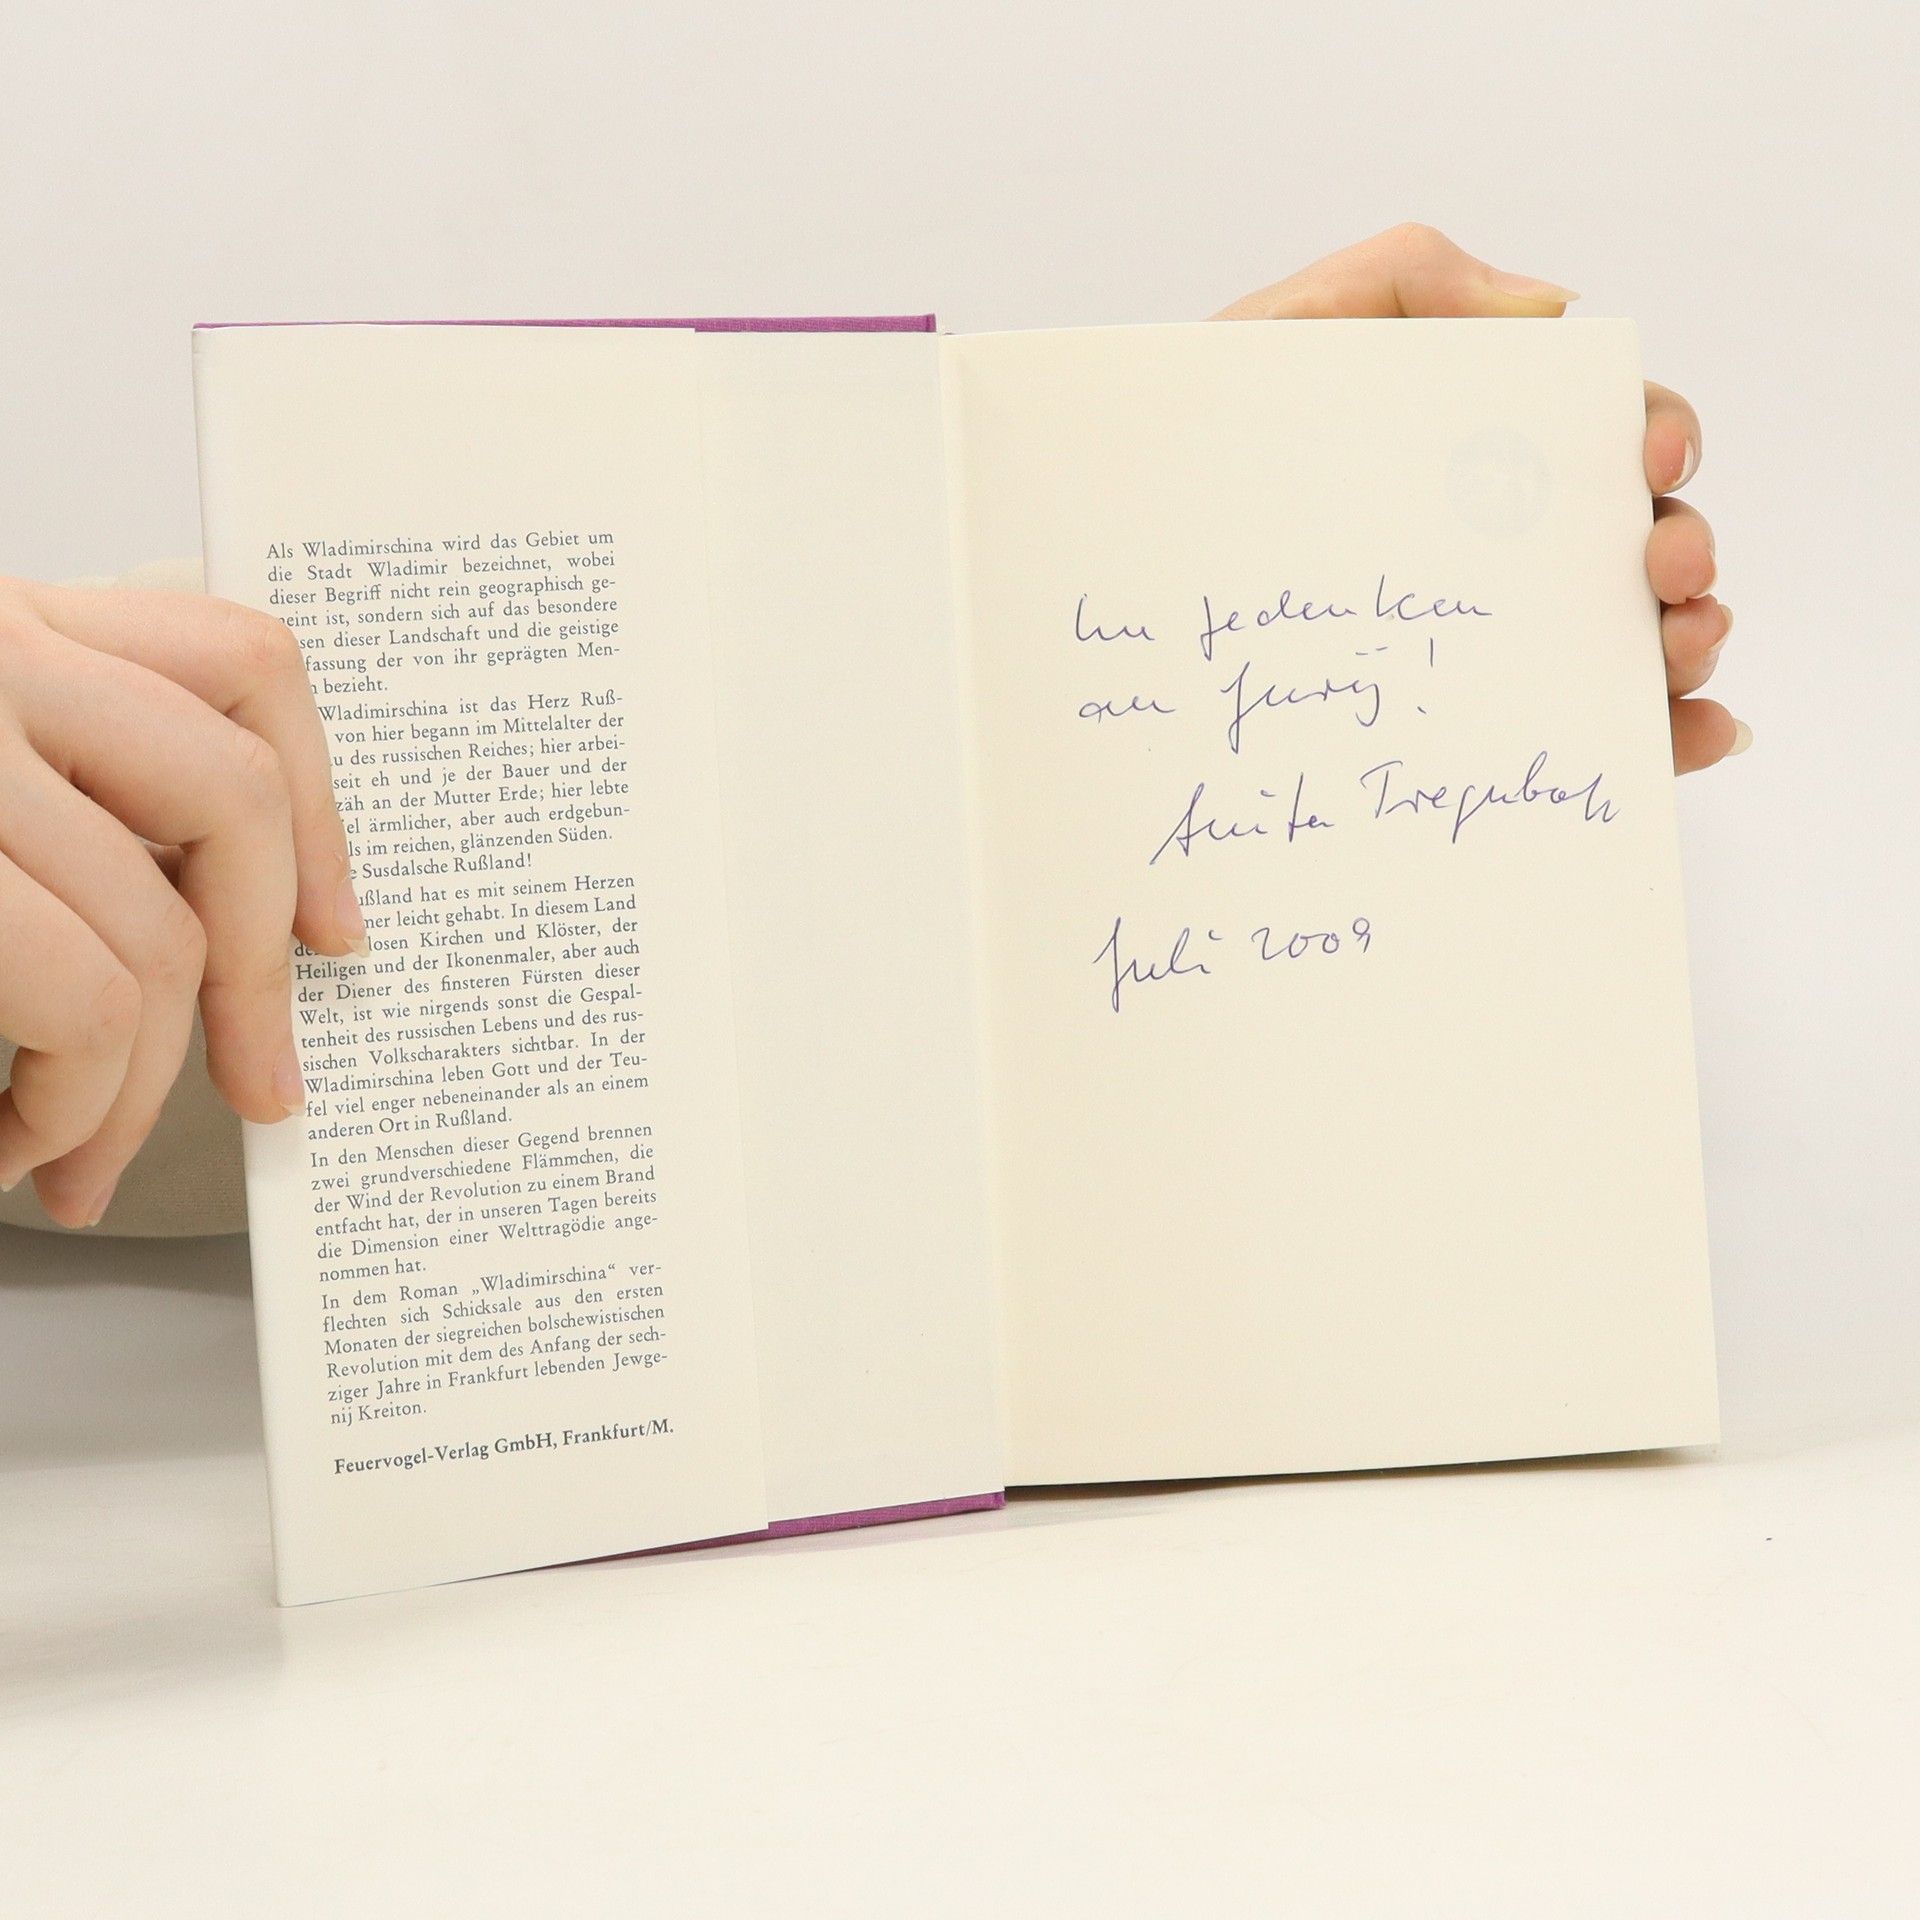 Als Wladimirschina wird das Gebiet um
die Stadt Wladimir bezeichnet, wobei
dieser Begriff nicht rein geographisch ge-
meint ist, sondern sich auf das besondere
sen dieser Landschaft und die geistige
fassung der von ihr geprägten Men-
bezieht.
Wladimirschina ist das Herz Ruß-
von hier begann im Mittelalter der
u des russischen Reiches; hier arbei-
seit eh und je der Bauer und der
zäh an der Mutter Erde; hier lebte
iel ärmlicher, aber auch erdgebun-
ls im reichen, glänzenden Süden.
e Susdalsche Rußland!
ußland hat es mit seinem Herzen
mer leicht gehabt. In diesem Land
de losen Kirchen und Klöster, der
Heiligen und der Ikonenmaler, aber auch
der Diener des finsteren Fürsten dieser
Welt, ist wie nirgends sonst die Gespal-
tenheit des russischen Lebens und des rus-
sischen Volkscharakters sichtbar. In der
Wladimirschina leben Gott und der Teu-
fel viel enger nebeneinander als an einem
anderen Ort in Rußland.
In den Menschen dieser Gegend brennen
zwei grundverschiedene Flämmchen, die
der Wind der Revolution zu einem Brand
entfacht hat, der in unseren Tagen bereits
die Dimension einer Welttragödie ange-
nommen hat.
In dem Roman „Wladimirschina“ ver-
flechten sich Schicksale aus den ersten
Monaten der siegreichen bolschewistischen
Revolution mit dem des Anfang der sech-
ziger Jahre in Frankfurt lebenden Jewge-
nij Kreiton.
Feuervogel-Verlag GmbH, Frankfurt/M.
Im Gedenken
an Jurij!
Anita
Juli 2009